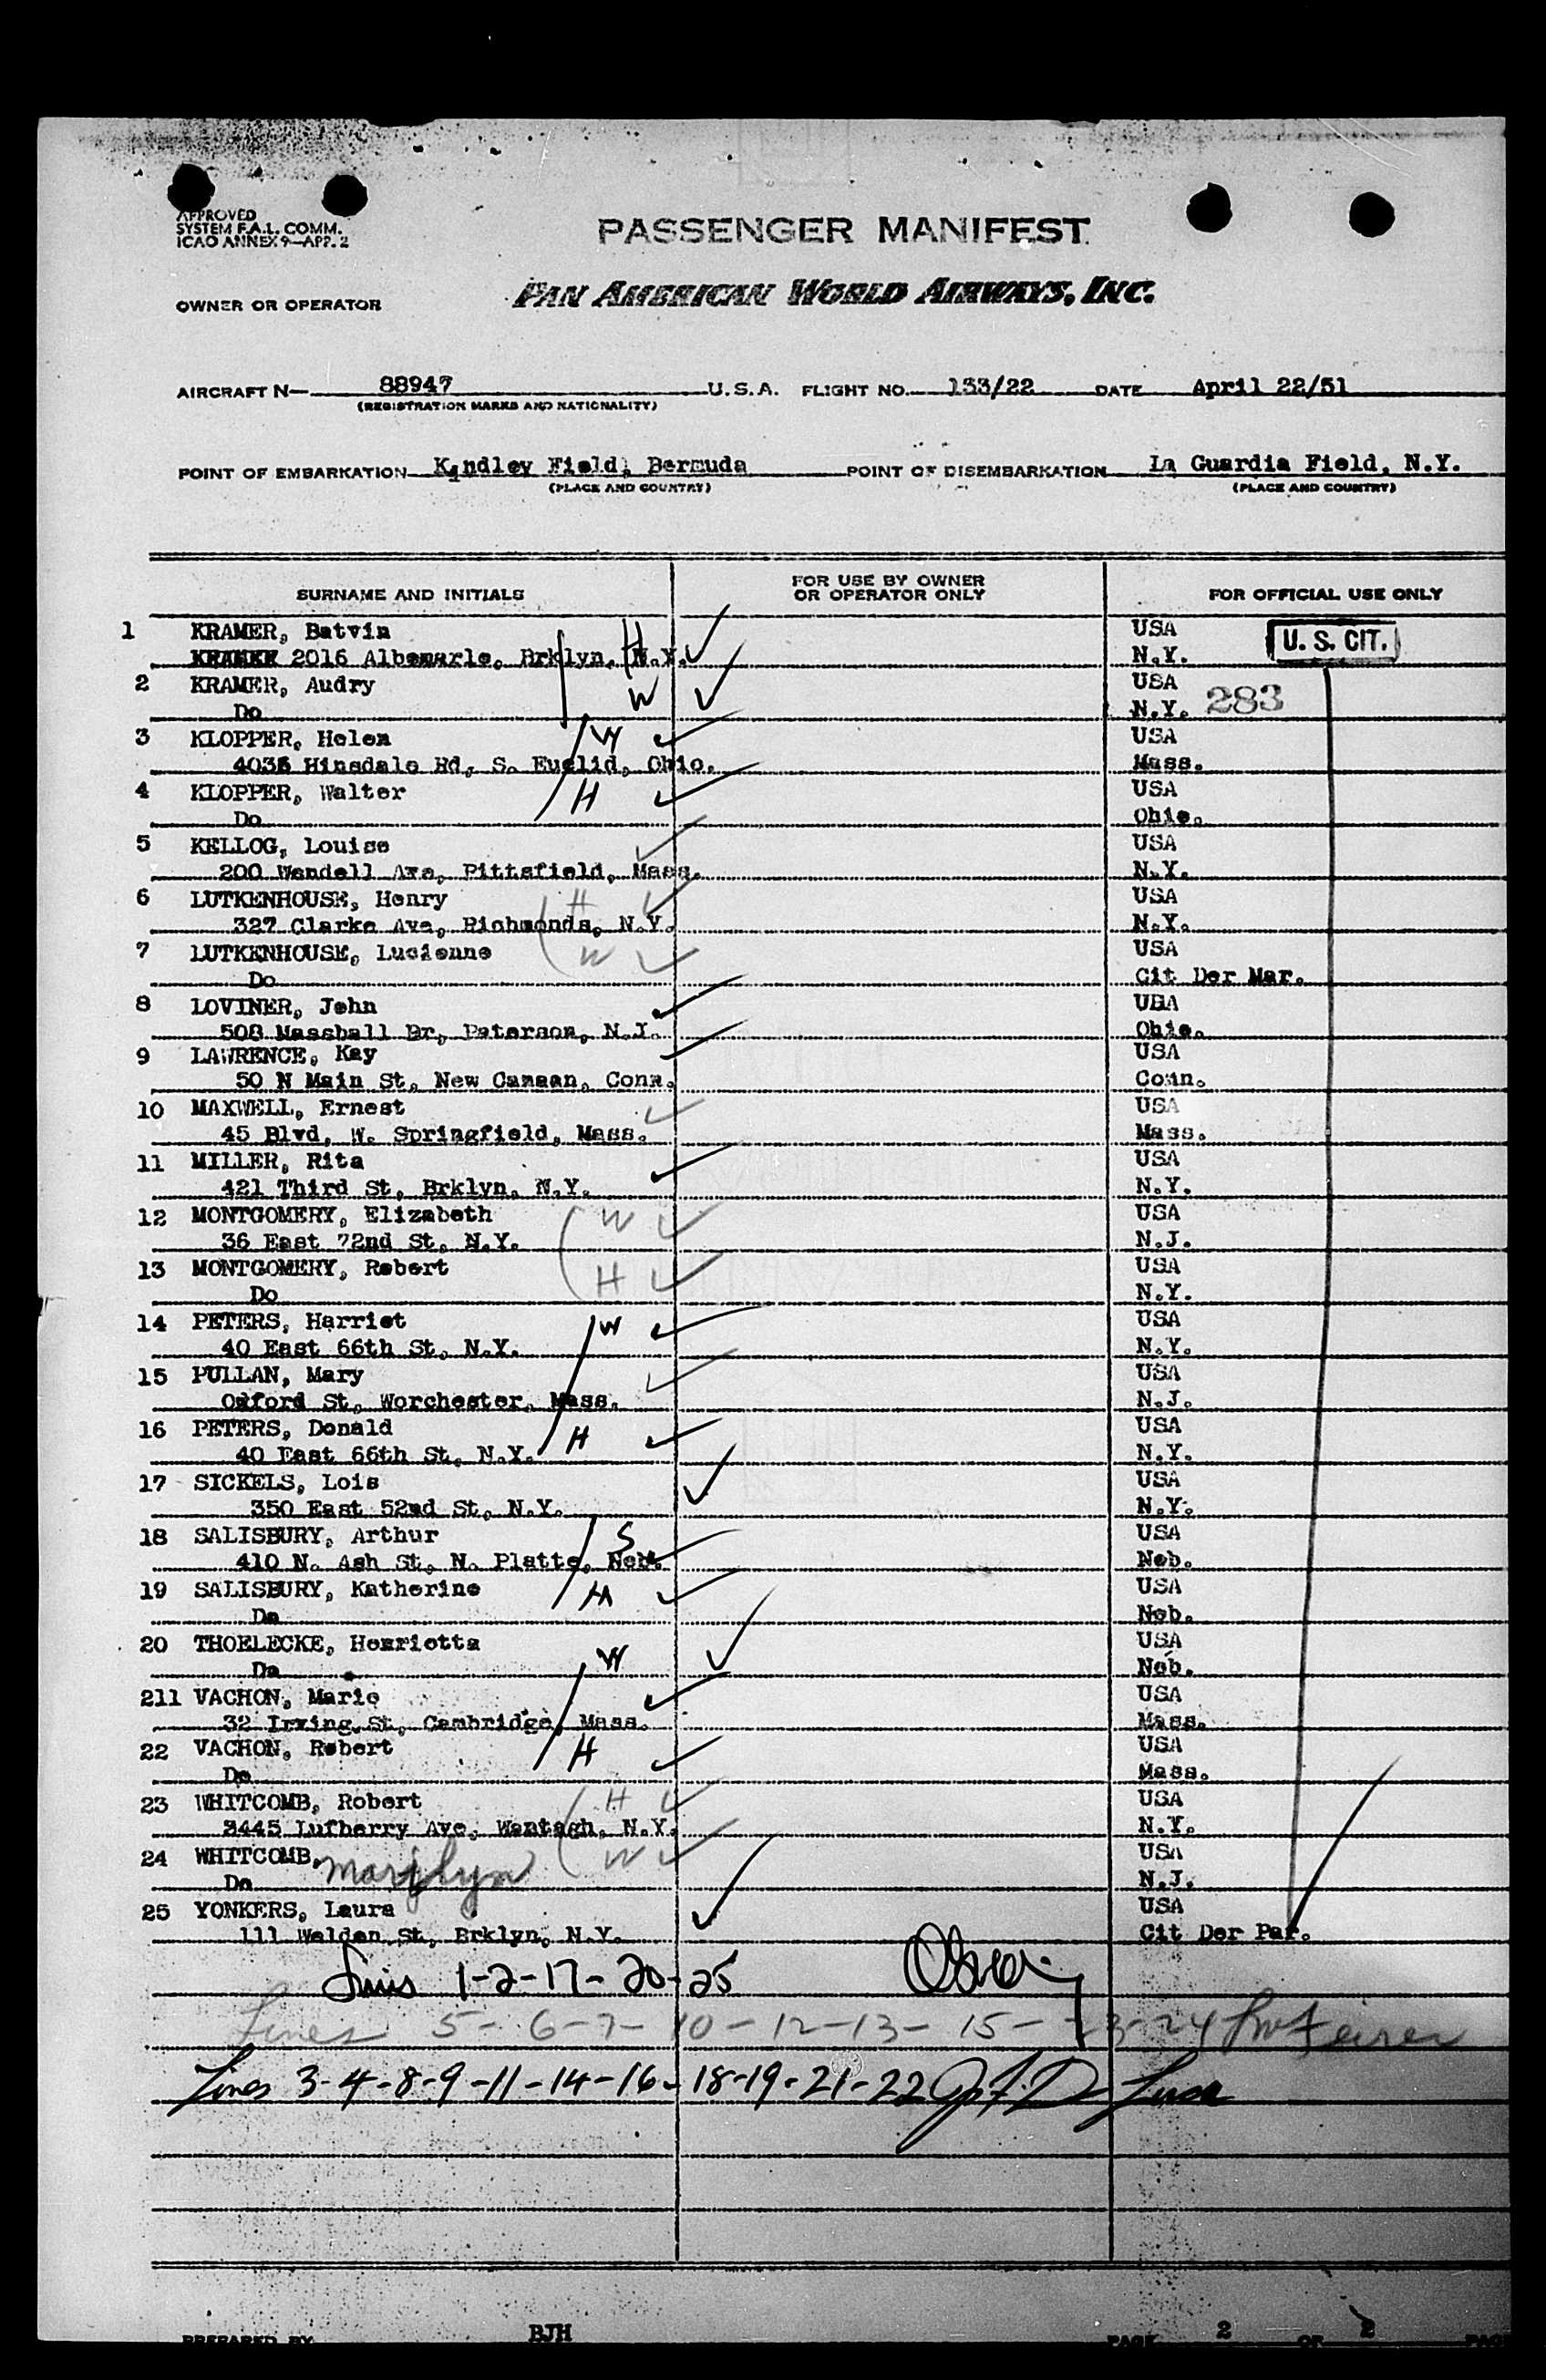 APPROVED
SYSTEM F.A.L. COMM.
ICAO ANNEX 9—APP. 2
PASSENGER MANIFEST
OWNER OR OPERATOR PAN AMERICAN WORLD AIRWAYS, INC.
AIRCRAFT N— 88947 U.S.A. FLIGHT NO. 133/22 DATE April 22/51
(REGISTRATION MARKS AND NATIONALITY)
POINT OF EMBARKATION Kindley Field, Bermuda POINT OF DISEMBARKATION La Guardia Field, N.Y.
(PLACE AND COUNTRY) (PLACE AND COUNTRY)
SURNAME AND INITIALS FOR USE BY OWNER OR OPERATOR ONLY FOR OFFICIAL USE ONLY
1 KRAMER, Batvin H USA U. S. CIT.
2016 Albemarle, Brklyn, N.Y. N.Y.
2 KRAMER, Audry W USA
Do N.Y. 283
3 KLOPPER, Helen W USA
Hinsdale Rd, S. Euclid, Ohio. Mass.
4 KLOPPER, Walter H USA
Do Ohio.
5 KELLOG, Louise USA
200 Wendell Ave, Pittsfield, Mass. N.Y.
6 LUTKENHOUSE, Henry H USA
327 Clarke Ave, Richmonds, N.Y. N.Y.
7 LUTKENHOUSE, Lucienne W USA
Do Cit Der Mar.
8 LOVINER, John USA
508 Dr, Paterson, N.J. Ohio.
9 LAWRENCE, Kay USA
50 N Main St, New Canaan, Conn. Conn.
10 MAXWELL, Ernest USA
45 Blvd, W. Springfield, Mass. Mass.
11 MILLER, Rita USA
421 Third St, Brklyn, N.Y. N.Y.
12 MONTGOMERY, Elizabeth W USA
36 East 72nd St, N.Y. N.J.
13 MONTGOMERY, Robert H USA
Do N.Y.
14 PETERS, Harriet W USA
40 East 66th St, N.Y. N.Y.
15 PULLAN, Mary USA
Oxford St, Worchester, Mass. N.J.
16 PETERS, Donald H USA
40 East 66th St, N.Y. N.Y.
17 SICKELS, Lois USA
350 East 52nd St, N.Y. N.Y.
18 SALISBURY, Arthur S USA
410 N. Ash St, N. Platte, Neb. Neb.
19 SALISBURY, Katherine M USA
Do Neb.
20 THOELECKE, Henrietta USA
Do Neb.
211 VACHON, Marie W USA
32 Irving St, Cambridge, Mass. Mass.
22 VACHON, Robert H USA
Do Mass.
23 WHITCOMB, Robert H USA
3445 Lufberry Ave, Wantagh, N.Y. N.Y.
24 WHITCOMB, Marilyn W USA
Do N.J.
25 YONKERS, Laura USA
111 Weldon St, Brklyn, N.Y. Cit Der Par.
Lines 1-2-17-20-25
Lines 5-6-7-10-12-13-15-23-24
Lines 3-4-8-9-11-14-16-18-19-21-22
PREPARED BY BJH PAGE 2 OF 2